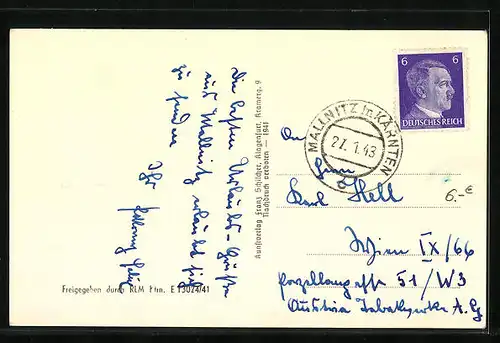 Die besten Urlaubs-Grüße
aus Mallnitz erlaubt sich
zu senden
Ihr
Kunstverlag Franz Schilcher, Klagenfurt, Kramerg. 9
Nachdruck verboten — 1941
Freigegeben durch RLM Pfm. E 13024/41
6 6
DEUTSCHES REICH
MALLNITZ in KÄRNTEN
27.1.43
An
Herrn
Karl Hell
6.-€
Wien IX/66
Porzellangasse 51/W3
Austria Tabakwerke A.G